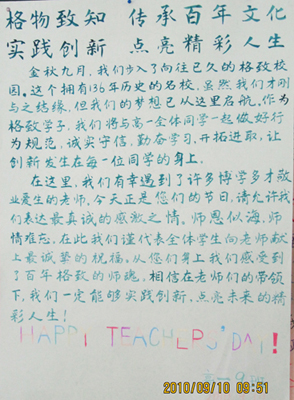 格物致知 传承百年文化
实践创新 点亮精彩人生
金秋九月,我们步入了向往已久的格致校
园。这个拥有136年历史的名校,虽然我们才刚
与之结缘,但我们的梦想已从这里启航。作为
格致学子,我们将与高一全体同学一起做好行
为规范,诚实守信,勤奋学习,开拓进取,让
创新发生在每一位同学的身上。
在这里,我们有幸遇到了许多博学多才敬
业爱生的老师,今天正是您们的节日,请允许我
们表达最真诚的感激之情。师恩似海,师
情难忘,在此我们谨代表全体学生向老师献
上最诚挚的祝福,从您们身上我们感受到
了百年格致的师魂,相信在老师们的带领
下,我们一定能够实践创新,点亮未来的精
彩人生!
高一9班
2010/09/10 09:51